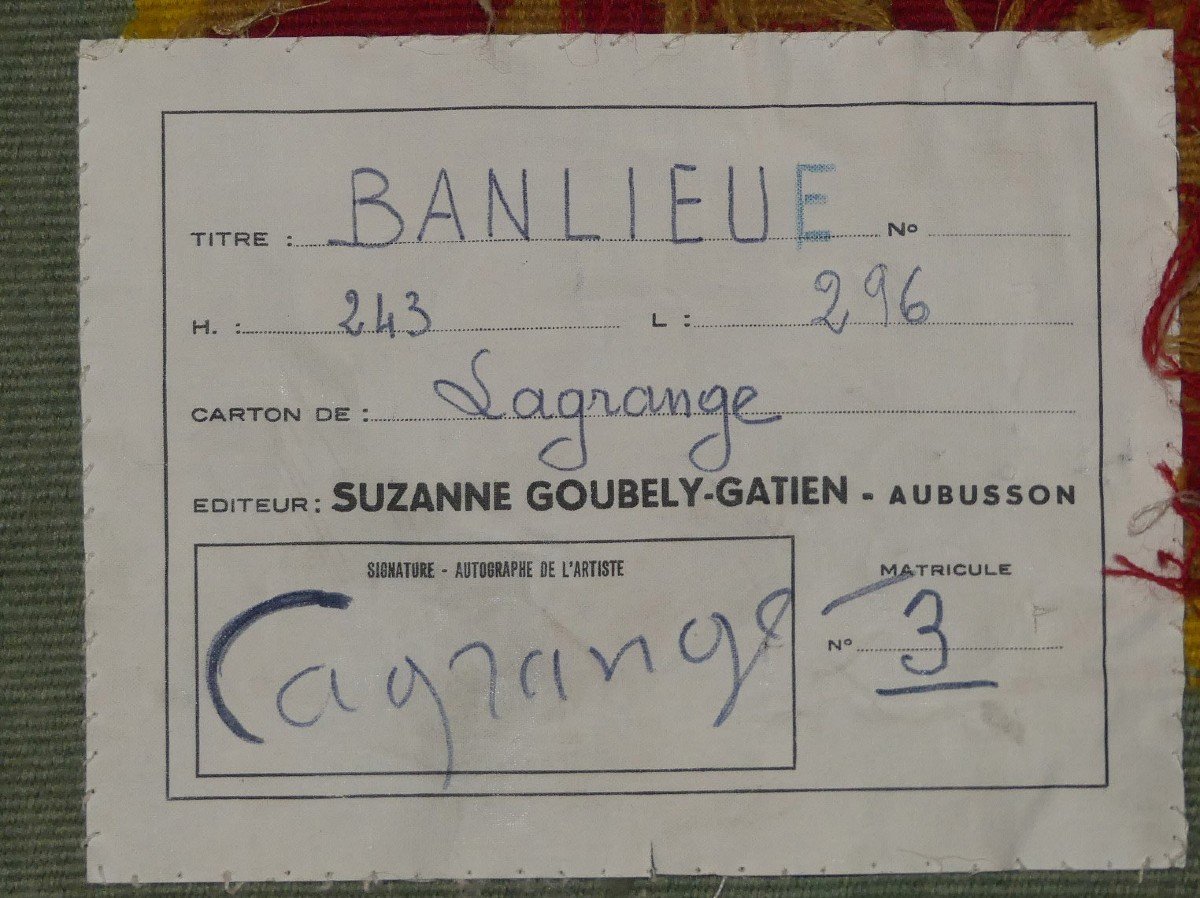 TITRE : BANLIEUE No
H. : 243 L : 296
CARTON DE : Lagrange
EDITEUR : SUZANNE GOUBELY-GATIEN - AUBUSSON
SIGNATURE - AUTOGRAPHE DE L'ARTISTE
Lagrange
MATRICULE
No 3